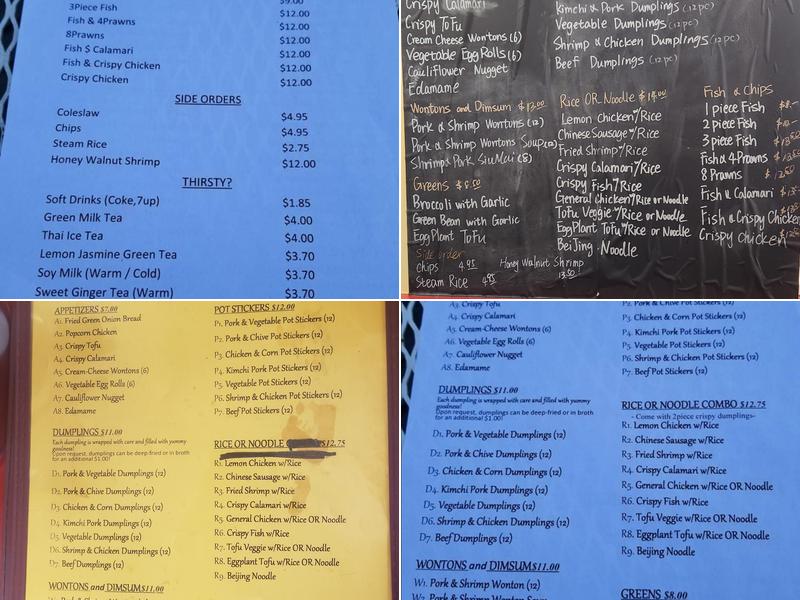 $9.00
3Piece Fish $12.00
Fish & 4Prawns $12.00
8Prawns $12.00
Fish $ Calamari $12.00
Fish & Crispy Chicken $12.00
Crispy Chicken $12.00
SIDE ORDERS
Coleslaw $4.95
Chips $4.95
Steam Rice $2.75
Honey Walnut Shrimp $12.00
THIRSTY?
Soft Drinks (Coke,7up) $1.85
Green Milk Tea $4.00
Thai Ice Tea $4.00
Lemon Jasmine Green Tea $3.70
Soy Milk (Warm / Cold) $3.70
Sweet Ginger Tea (Warm) $3.70
Crispy Calamari
Crispy ToFu
Cream Cheese Wontons (6)
Vegetable Egg Rolls (6)
Cauliflower Nugget
Edamame
Wontons and Dimsum $13.00
Pork & Shrimp Wontons (12)
Pork & Shrimp Wontons Soup(12)
Shrimp & Pork SiuMai (8)
Greens $8.50
Broccoli with Garlic
Green Bean with Garlic
EggPlant ToFu
Side order
chips 4.95
Steam Rice
Honey Walnut Shrimp
13.50
Kimchi & Pork Dumplings (12pc)
Vegetable Dumplings (12pc)
Shrimp & Chicken Dumplings (12pc)
Beef Dumplings (12pc)
Rice OR Noodle
Lemon Chicken w/Rice
Chinese Sausage w/Rice
Fried Shrimp w/Rice
Crispy Calamari w/Rice
Crispy Fish w/Rice
General Chicken w/Rice or Noodle
ToFu Veggie w/Rice or Noodle
EggPlant ToFu w/Rice or Noodle
BeiJing Noodle
Fish & Chips
1 piece Fish
2 piece Fish
3 piece Fish
Fish & 4-Prawns
8 Prawns
Fish & Calamari
Fish & Crispy Chicken
Crispy Chicken
APPETIZERS $7.00
A1. Fried Green Onion Bread
A2. Popcorn Chicken
A3. Crispy Tofu
A4. Crispy Calamari
A5. Cream-Cheese Wontons (6)
A6. Vegetable Egg Rolls (6)
A7. Cauliflower Nugget
A8. Edamame
DUMPLINGS $11.00
Each dumpling is wrapped with care and filled with yummy
goodness!
Upon request, dumplings can be deep-fried or in broth
for an additional $1.00!
D1. Pork & Vegetable Dumplings (12)
D2. Pork & Chive Dumplings (12)
D3. Chicken & Corn Dumplings (12)
D4. Kimchi Pork Dumplings (12)
D5. Vegetable Dumplings (12)
D6. Shrimp & Chicken Dumplings (12)
D7. Beef Dumplings (12)
WONTONS and DIMSUM $11.00
POT STICKERS $12.00
P1. Pork & Vegetable Pot Stickers (12)
P2. Pork & Chive Pot Stickers (12)
P3. Chicken & Corn Pot Stickers (12)
P4. Kimchi Pork Pot Stickers (12)
P5. Vegetable Pot Stickers (12)
P6. Shrimp & Chicken Pot Stickers (12)
P7. Beef Pot Stickers (12)
RICE OR NOODLE $12.75
R1. Lemon Chicken w/Rice
R2. Chinese Sausage w/Rice
R3. Fried Shrimp w/Rice
R4. Crispy Calamari w/Rice
R5. General Chicken w/Rice OR Noodle
R6. Crispy Fish w/Rice
R7. Tofu Veggie w/Rice OR Noodle
R8. Eggplant Tofu w/Rice OR Noodle
R9. Beijing Noodle
A3. Crispy Tofu
A4. Crispy Calamari
A5. Cream-Cheese Wontons (6)
A6. Vegetable Egg Rolls (6)
A7. Cauliflower Nugget
A8. Edamame
DUMPLINGS $11.00
Each dumpling is wrapped with care and filled with yummy
goodness!
Upon request, dumplings can be deep-fried or in broth
for an additional $1.00!
D1. Pork & Vegetable Dumplings (12)
D2. Pork & Chive Dumplings (12)
D3. Chicken & Corn Dumplings (12)
D4. Kimchi Pork Dumplings (12)
D5. Vegetable Dumplings (12)
D6. Shrimp & Chicken Dumplings (12)
D7. Beef Dumplings (12)
WONTONS and DIMSUM $11.00
W1. Pork & Shrimp Wonton (12)
W2. Pork & Shrimp Wonton Soup
P2. Pork & Chive Pot Stickers (12)
P3. Chicken & Corn Pot Stickers (12)
P4. Kimchi Pork Pot Stickers (12)
P5. Vegetable Pot Stickers (12)
P6. Shrimp & Chicken Pot Stickers (12)
P7. Beef Pot Stickers (12)
RICE OR NOODLE COMBO $12.75
- Come with 2piece crispy dumplings-
R1. Lemon Chicken w/Rice
R2. Chinese Sausage w/Rice
R3. Fried Shrimp w/Rice
R4. Crispy Calamari w/Rice
R5. General Chicken w/Rice OR Noodle
R6. Crispy Fish w/Rice
R7. Tofu Veggie w/Rice OR Noodle
R8. Eggplant Tofu w/Rice OR Noodle
R9. Beijing Noodle
GREENS $8.00